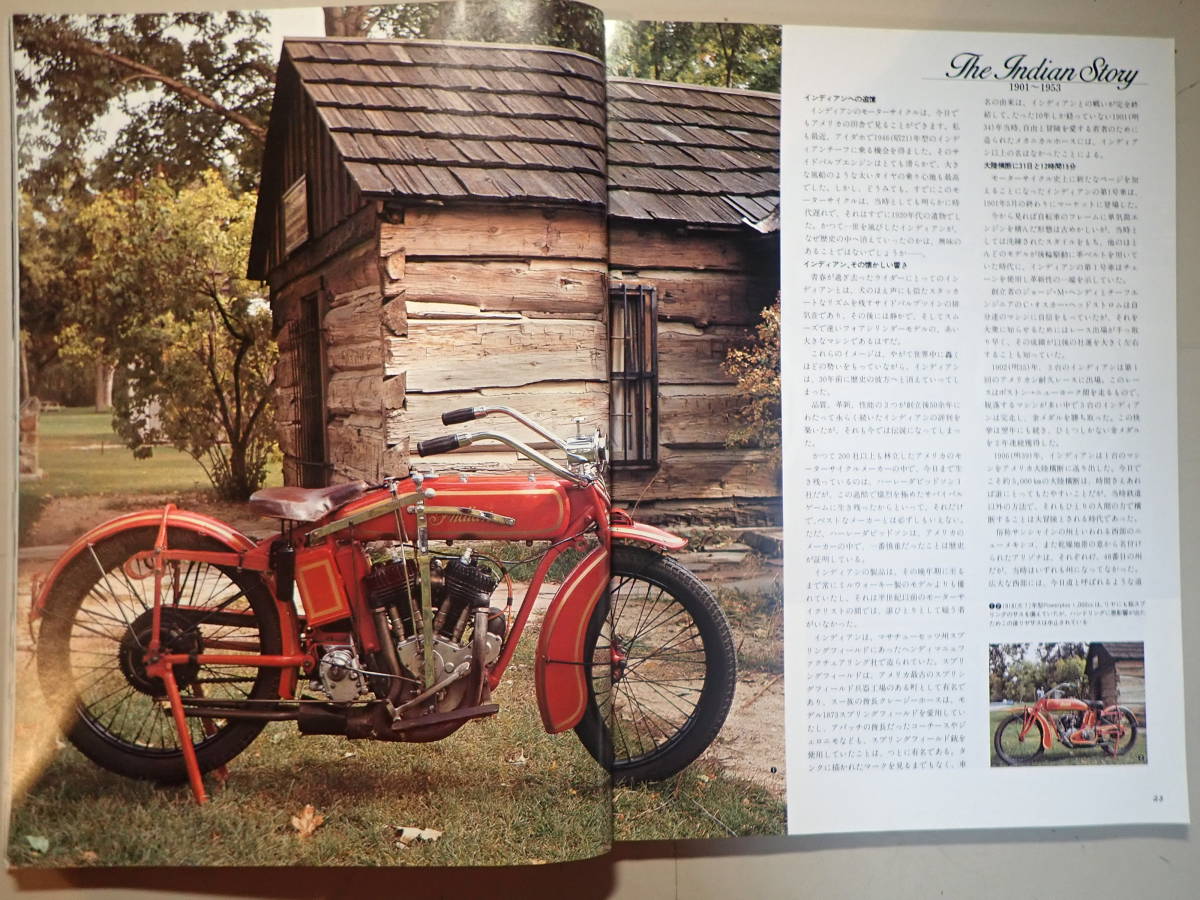 The Indian Story
1901〜1953
インディアンへの追憶
インディアンのモーターサイクルは、今日で
もアメリカの田舎で見ることができます。私
も最近、アイダホで1946(昭21)年型のインデ
ィアンチーフに乗る機会を得ました。そのサ
イドバルブエンジンはとても滑らかで、大き
な風船のような太いタイヤの乗り心地も最高
でした。しかし、どうみても、すでにこのモ
ーターサイクルは、当時としても明らかに時
代遅れで、それはすでに1920年代の遺物でし
た。かつて一世を風びしたインディアンが、
なぜ歴史の中へ消えていったのかは、興味の
あることではないでしょうか──。
インディアン、その懐かしい響き
青春が過ぎ去ったライダーにとってのイン
ディアンとは、犬のほえ声にも似たスタッカ
ートなリズムを残すサイドバルブツインの排
気音であり、その後には静かで、そしてスム
ーズで速いフォアシリンダーモデルの、赤い
大きなマシンであるはずだ。
これらのイメージは、やがて世界中に轟く
ほどの勢いをもっていながら、インディアン
は、30年前に歴史の彼方へと消えていってし
まった。
品質、革新、性能の3つが創立後50余年に
わたって永らく続いたインディアンの評判を
築いたが、それも今では伝説になってしまっ
た。
かつて200社以上も林立したアメリカのモ
ーターサイクルメーカーの中で、今日まで生
き残っているのは、ハーレーダビッドソン1
社だが、この過酷で熾烈を極めたサバイバル
ゲームに生き残ったからといって、それだけ
で、ベストなメーカーとは必ずしもいえない。
ただ、ハーレーダビッドソンは、アメリカの
メーカーの中で、一番慎重だったことは歴史
が証明している。
インディアンの製品は、その晩年期に至る
まで常にミルウォーキー製のモデルよりも優
れていたし、それは半世紀以前のモーターサ
イクリストの間では、誰ひとりとして疑う者
がいなかった。
インディアンは、マサチューセッツ州スプ
リングフィールドにあったヘンディマニュフ
ァクチェアリング社で造られていた。スプリ
ングフィールドは、アメリカ最古のスプリン
グフィールド兵器工場のある町として有名で
あり、スー族の酋長クレージーホースは、モ
デル1873スプリングフィールドを愛用してい
たし、アパッチの酋長だったコーチースやジ
ェロニモなども、スプリングフィールド銃を
使用していたことは、つとに有名である。タ
ンクに描かれたマークを見るまでもなく、車
名の由来は、インディアンとの戦いが完全終
結して、たった10年しか経っていない1901(明
34)年当時、自由と冒険を愛する若者のために
造られたメカニカルホースには、インディア
ン以上の名はなかったことによる。
大陸横断に31日と12時間15分
モーターサイクル史上に新たなページを加
えることになったインディアンの第1号車は、
1901年5月の終わりにマーケットに登場した。
今から見れば自転車のフレームに単気筒エ
ンジンを積んだ形態は古めかしいが、当時と
しては洗練されたスタイルをもち、他のほと
んどのモデルが後輪駆動に革ベルトを用いて
いた時代に、インディアンの第1号車はチェ
ーンを使用し革新性の一端を示していた。
創立者のジョージ・M・ヘンディーとチーフエ
ンジニアのC・オスカー・ヘッドストロムは自
分達のマシンに自信をもっていたが、それを
大衆に知らせるためにはレース出場が手っ取
り早く、その成績が以後の社運を大きく左右
することも知っていた。
1902(明35)年、3台のインディアンは第1
回のアメリカン耐久レースに出場。このレー
スはボストン〜ニューヨーク間を走るもので、
脱落するマシンが多い中で3台のインディア
ンは完走し、金メダルを勝ち取った。この快
挙は翌年にも続き、ひとつしかない金メダル
を2年連続獲得した。
1906(明39)年、インディアンは1台のマシ
ンをアメリカ大陸横断に送り出した。今日で
こそ約5,000kmの大陸横断は、時間さえあれ
ば誰にとってもたやすいことだが、当時鉄道
以外の方法で、それもひとりの人間の力で横
断することは大冒険とされる時代であった。
俗称サンシャインの州といわれる西部のニ
ューメキシコ、また乾燥地帯の意から名付け
られたアリゾナは、それぞれ47、48番目の州
だが、当時はいずれも州になってなかった。
広大な西部には、今日道と呼ばれるような道
Indian
23